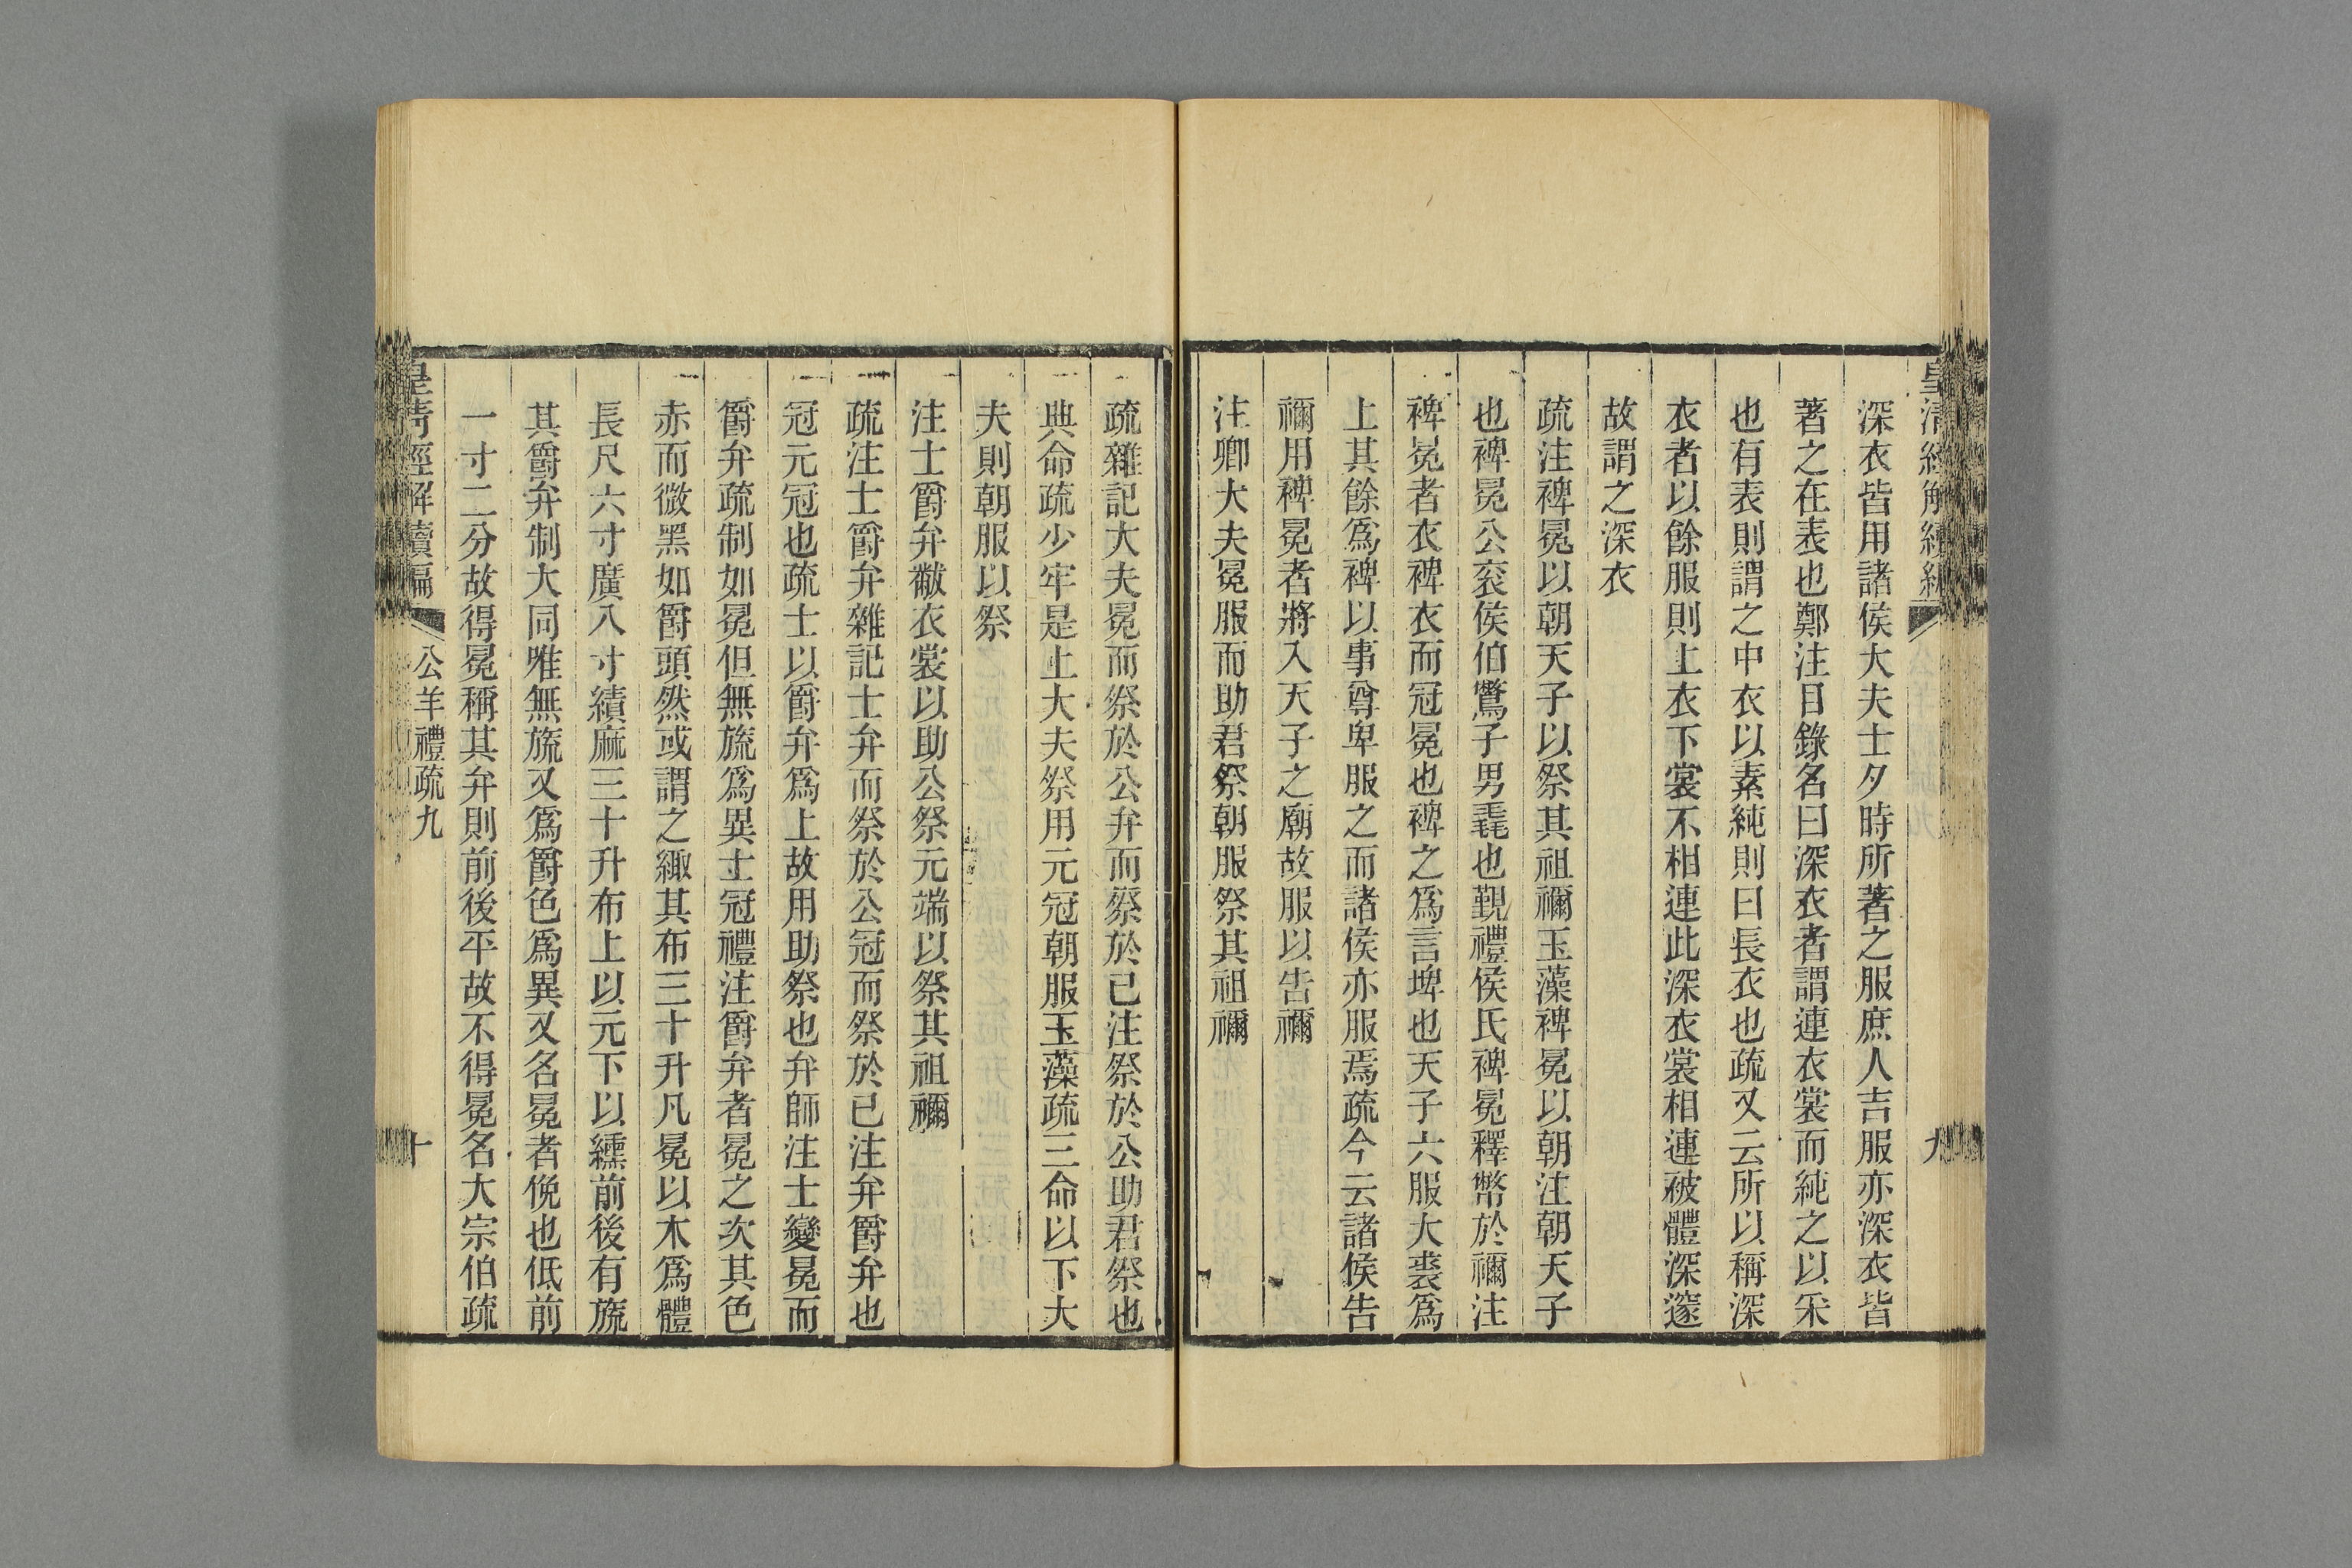 皇清經解續編
九
深衣皆用諸侯大夫士夕時所著之服庶人吉服亦深衣皆
著之在表也鄭注目錄名曰深衣者謂連衣裳而純之以采
也有表則謂之中衣以素純則曰長衣也疏又云所以稱深
衣者以餘服則上衣下裳不相連此深衣裳相連被體深邃
故謂之深衣
疏注裨冕以朝天子以祭其祖禰玉藻裨冕以朝注朝天子
也裨冕公衮侯伯鷩子男毳也覲禮侯氏裨冕釋幣於禰注
裨冕者衣裨衣而冠冕也裨之爲言埤也天子六服大裘爲
上其餘爲裨以事尊卑服之而諸侯亦服焉疏今云諸侯告
禰用裨冕者將入天子之廟故服以告禰
注卿大夫冕服而助君祭朝服祭其祖禰
疏雜記大夫冕而祭於公弁而祭於已注祭於公助君祭也
典命疏少牢是上大夫祭用元冠朝服玉藻疏三命以下大
夫則朝服以祭
注士爵弁黻衣裳以助公祭元端以祭其祖禰
疏注士爵弁雜記士弁而祭於公冠而祭於已注弁爵弁也
冠元冠也疏士以爵弁爲上故用助祭也弁師注士變冕而
爵弁疏制如冕但無旒爲異士冠禮注爵弁者冕之次其色
赤而微黑如爵頭然或謂之緅其布三十升凡冕以木爲體
長尺六寸廣八寸績麻三十升布上以元下以纁前後有旒
其爵弁制大同唯無旒又爲爵色爲異又名冕者俛也低前
一寸二分故得冕稱其弁則前後平故不得冕名大宗伯疏
皇清經解續編
公羊禮疏九
十